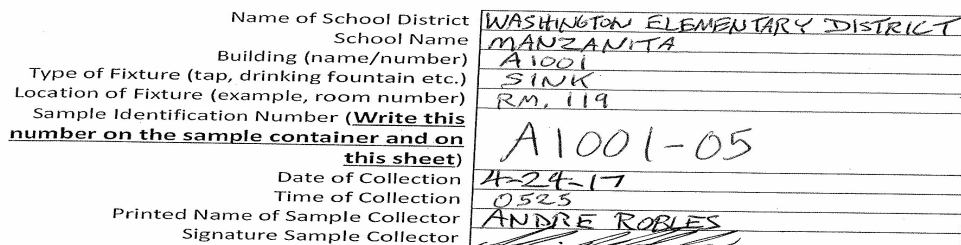 Name of School District WASHINGTON ELEMENTARY DISTRICT
School Name MANZANITA
Building (name/number) A1001
Type of Fixture (tap, drinking fountain etc.) SINK
Location of Fixture (example, room number) RM. 119
Sample Identification Number (Write this
number on the sample container and on
this sheet) A1001-05
Date of Collection 4-24-17
Time of Collection 0525
Printed Name of Sample Collector ANDRE ROBLES
Signature Sample Collector